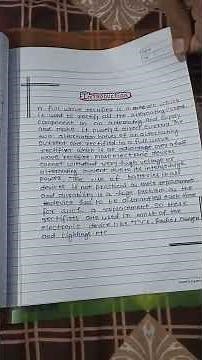 Introduction
A full wave rectifier is a device which
is used to rectify all the alternating current
component in an alternating and supply
and make it purely a direct current. The
two alternation halves of an alternating
current are rectified in a full wave
rectifier which is an advantage over a half
wave rectifier. Most electronic devices
cannot withstand very high voltage of
alternating current due to its intense high
power. The use of batteries in all
devices is not practical as their replacement
and durability is a huge problem as the
device has to be dismantled each time
for such a replacement. So these
rectifiers are used in most of the
electronic device like T.V's, Radios, Chargers
and Lighting etc